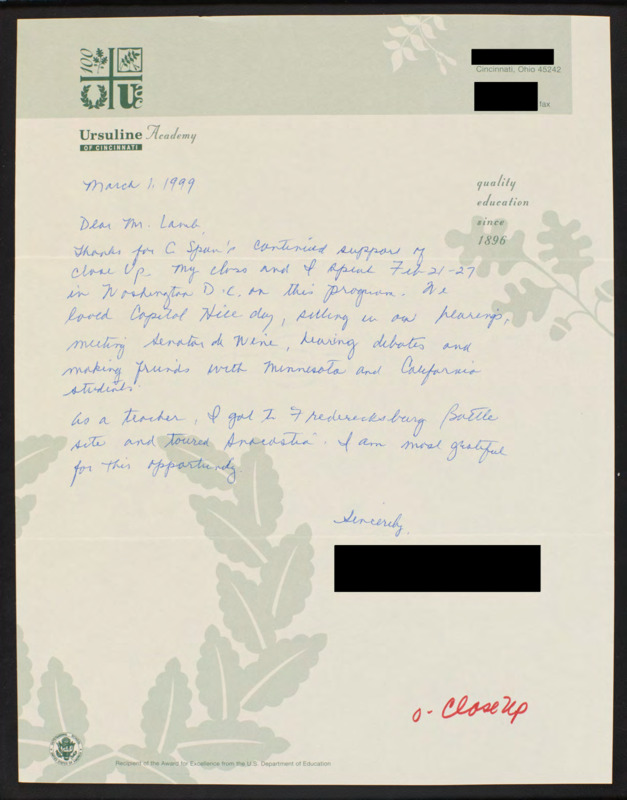 100
Uuc
Ursuline Academy
OF CINCINNATI
Cincinnati, Ohio 45242
fax
quality
education
since
1896
March 1, 1999
Dear Mr. Lamb,
Thanks for C Span's continued support of
Close Up. My class and I spent Feb 21-27
in Washington D.C. on this program. We
loved Capitol Hill day, sitting in on hearings,
meeting Senator de Wine, hearing debates and
making friends with Minnesota and California
students.
As a teacher, I got to Fredericksburg Battle
site and toured Anacostia. I am most grateful
for this opportunity.
Sincerely,
o- Close Up
Recipient of the Award for Excellence from the U.S. Department of Education